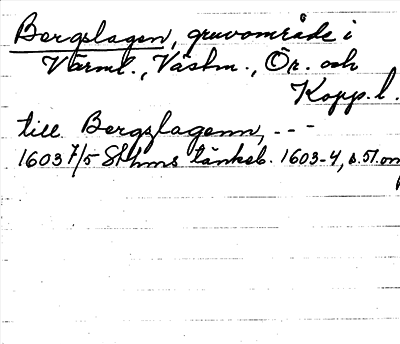 Bergslagen, gruvområde i
Värml., Västm., Ör. och
Kopp. l.
till Bergzlagenn, - - -
1603 7/5 Sthms tänkeb. 1603-4, s. 51. om